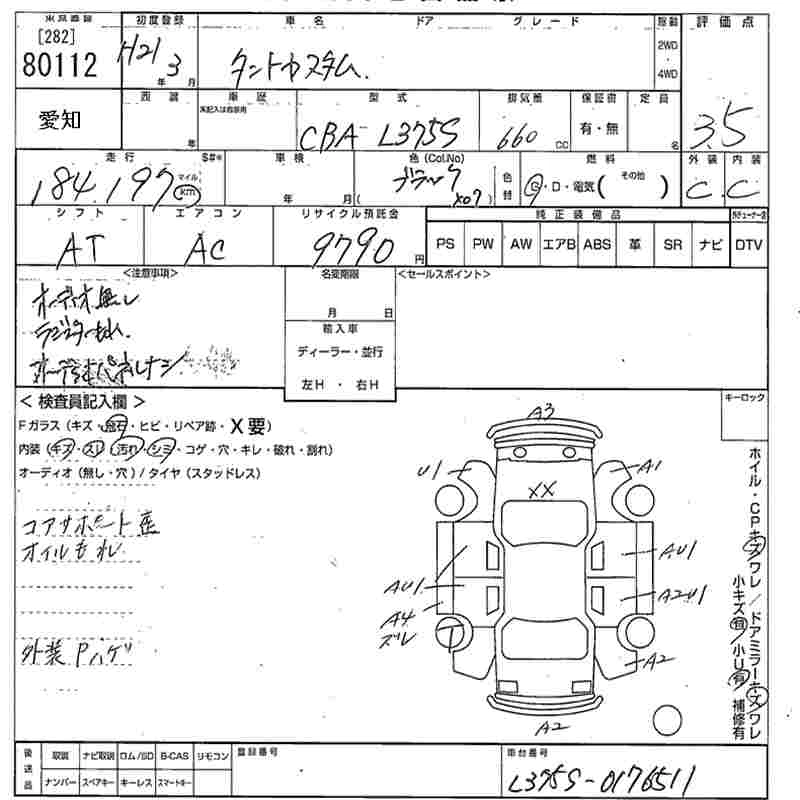 東京番号 初度登録 車名 ドア グレード 駆動 評価点
[282]
80112 H21 3 年 月 タントカスタム 2WD 4WD 3.5
愛知 西誠 年 車歴 未記入は自家用 型式 CBA-L375S 排気量 660 CC 保証書 有・無 定員 名
走行 184,197 マイル km S#* 車検 年 月 色 (Col.No) ブラック ( X07 ) 色替 燃料 G・D・電気( その他 ) 外装 内装 C C
シフト AT エアコン AC リサイクル預託金 9790 円 純正装備品
PS PW AW エアB ABS 革 SR ナビ DTV
<注意事項> 名変期限 <セールスポイント>
オーディオ無し 月 日
ラジエターもれ. 輸入車
オーディオパネルナシ ディーラー・並行
左H ・ 右H
< 検査員記入欄 > キーロック
Fガラス (キズ・飛石・ヒビ・リペア跡・X要)
内装 (キズ・スレ・汚れ・シミ・コゲ・穴・キレ・破れ・割れ)
オーディオ (無し・穴) / タイヤ (スタッドレス)
コアサポート歪
オイルもれ
外装Pハゲ
A3
U1 A1
XX
AU1
AU1 A2U1
A4
ズレ
A2
A2
ホイル・CPキズワレ/ドアミラーキズワレ
小キズ有 小U有 補修有
後送品 取説 ナビ取説 ロム/SD B-CAS リモコン 登録番号 車台番号
ナンバー スペアキー キーレス スマートキー L375S-0176511